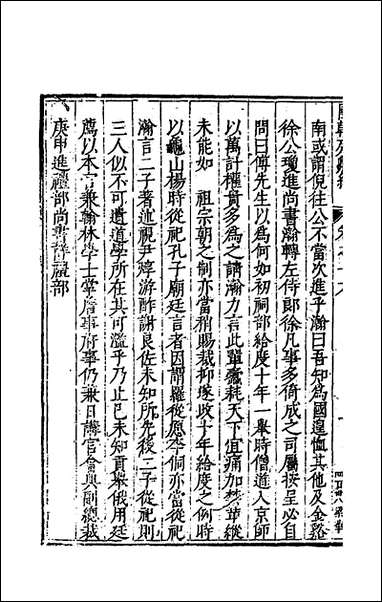 南或謂倪往公不當次進乎瀚曰吾知為國遑恤其他及金谿
徐公瓊進尚書瀚轉左侍郎徐凡事多倚成之司屬按呈必自
問曰傅先生以為何如初祠部給度十年一舉時僧道入京師
以萬計權貴多為之請瀚力言此輩蠹耗天下宜痛加禁革縱
未能如 祖宗朝之制亦當稍賜裁抑遂政十年給度之例時
以龜山楊時從祀孔子廟廷言者因謂羅從彥李侗亦當從祀
瀚言二子著述視尹焞游酢謝良佐未知所先後二子從祀則
三人似不可遺道學所在其可濫乎乃止已未知貢舉俄用廷
薦以本官兼翰林學士掌詹事府事仍兼日講官會典副總裁
庚申進禮部尚書掌禮部